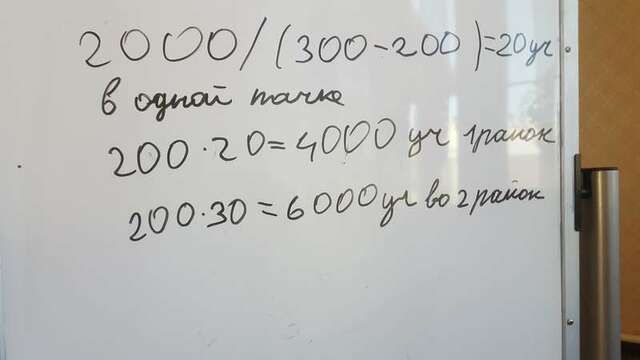 2000/(300-200)=20уч.
в одной пачке
200·20=4000 уч 1 район
200·30=6000 уч во 2 район